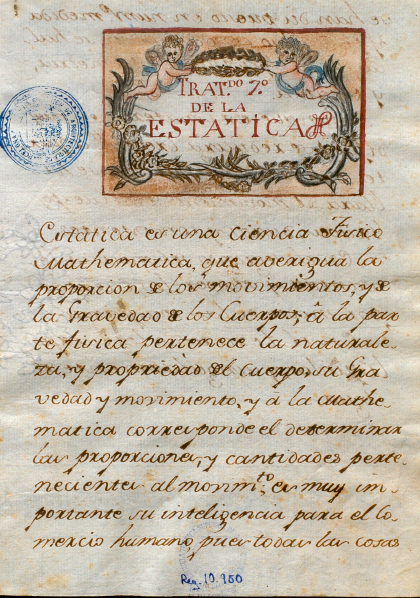 TRAT.DO 7.º
DE LA
ESTATICA
Estatica es una ciencia Fisico
Mathematica, que averigua la
proporcion de los movimientos, y de
la Gravedad de los Cuerpos; â la par
te fisica pertenece la naturale-
za, y propriedad del cuerpo, su Gra
vedad y movimiento, y â la mathe-
matica corresponde el determinar
las proporciones, y cantidades perte-
necientes al movim.to, es muy im-
portante su inteligencia para el Co-
mercio humano, pues todas las cosas
Reg. 10.950